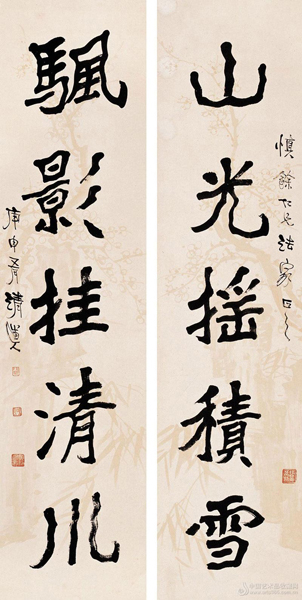 慎餘仁兄法家正之
山光搖積雪
颿影挂清川
庚申清道人